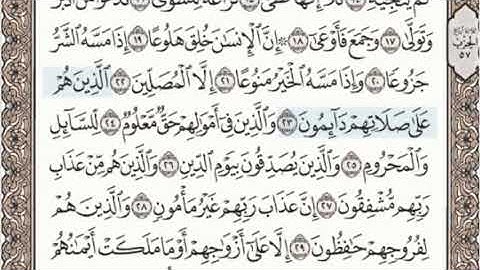 ثُمَّ يُنجِيهِ ١٤ كَلَّا إِنَّهَا لَظَىٰ ١٥ نَزَّاعَةً لِّلشَّوَىٰ ١٦ تَدْعُوا۟ مَنْ أَدْبَرَ
وَتَوَلَّىٰ ١٧ وَجَمَعَ فَأَوْعَىٰ ١٨ إِنَّ ٱلْإِنسَٰنَ خُلِقَ هَلُوعًا ١٩ إِذَا مَسَّهُ ٱلشَّرُّ
جَزُوعًا ٢٠ وَإِذَا مَسَّهُ ٱلْخَيْرُ مَنُوعًا ٢١ إِلَّا ٱلْمُصَلِّينَ ٢٢ ٱلَّذِينَ هُمْ
عَلَىٰ صَلَاتِهِمْ دَآئِمُونَ ٢٣ وَٱلَّذِينَ فِىٓ أَمْوَٰلِهِمْ حَقٌّ مَّعْلُومٌ ٢٤ لِّلسَّآئِلِ
وَٱلْمَحْرُومِ ٢٥ وَٱلَّذِينَ يُصَدِّقُونَ بِيَوْمِ ٱلدِّينِ ٢٦ وَٱلَّذِينَ هُم مِّنْ عَذَابِ
رَبِّهِم مُّشْفِقُونَ ٢٧ إِنَّ عَذَابَ رَبِّهِمْ غَيْرُ مَأْمُونٍ ٢٨ وَٱلَّذِينَ هُمْ
لِفُرُوجِهِمْ حَٰفِظُونَ ٢٩ إِلَّا عَلَىٰٓ أَزْوَٰجِهِمْ أَوْ مَا مَلَكَتْ أَيْمَٰنُهُمْ
الحزب
٥٧